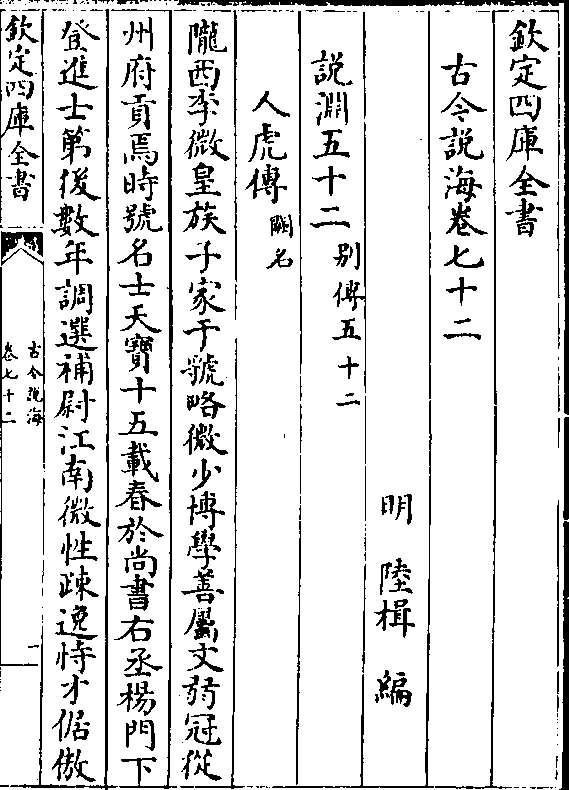 欽定四庫全書
古今說海卷七十二
明　陸楫　編
說淵五十二 别傳五十二
人虎傳 闕名
隴西李微皇族子家于虢略微少博學善屬文弱冠從
州府貢焉時號名士天寶十五載春於尚書右丞楊門下
登進士第後數年調選補尉江南微性疎逸恃才倨傲
欽定四庫全書
古今說海
卷七十二
一